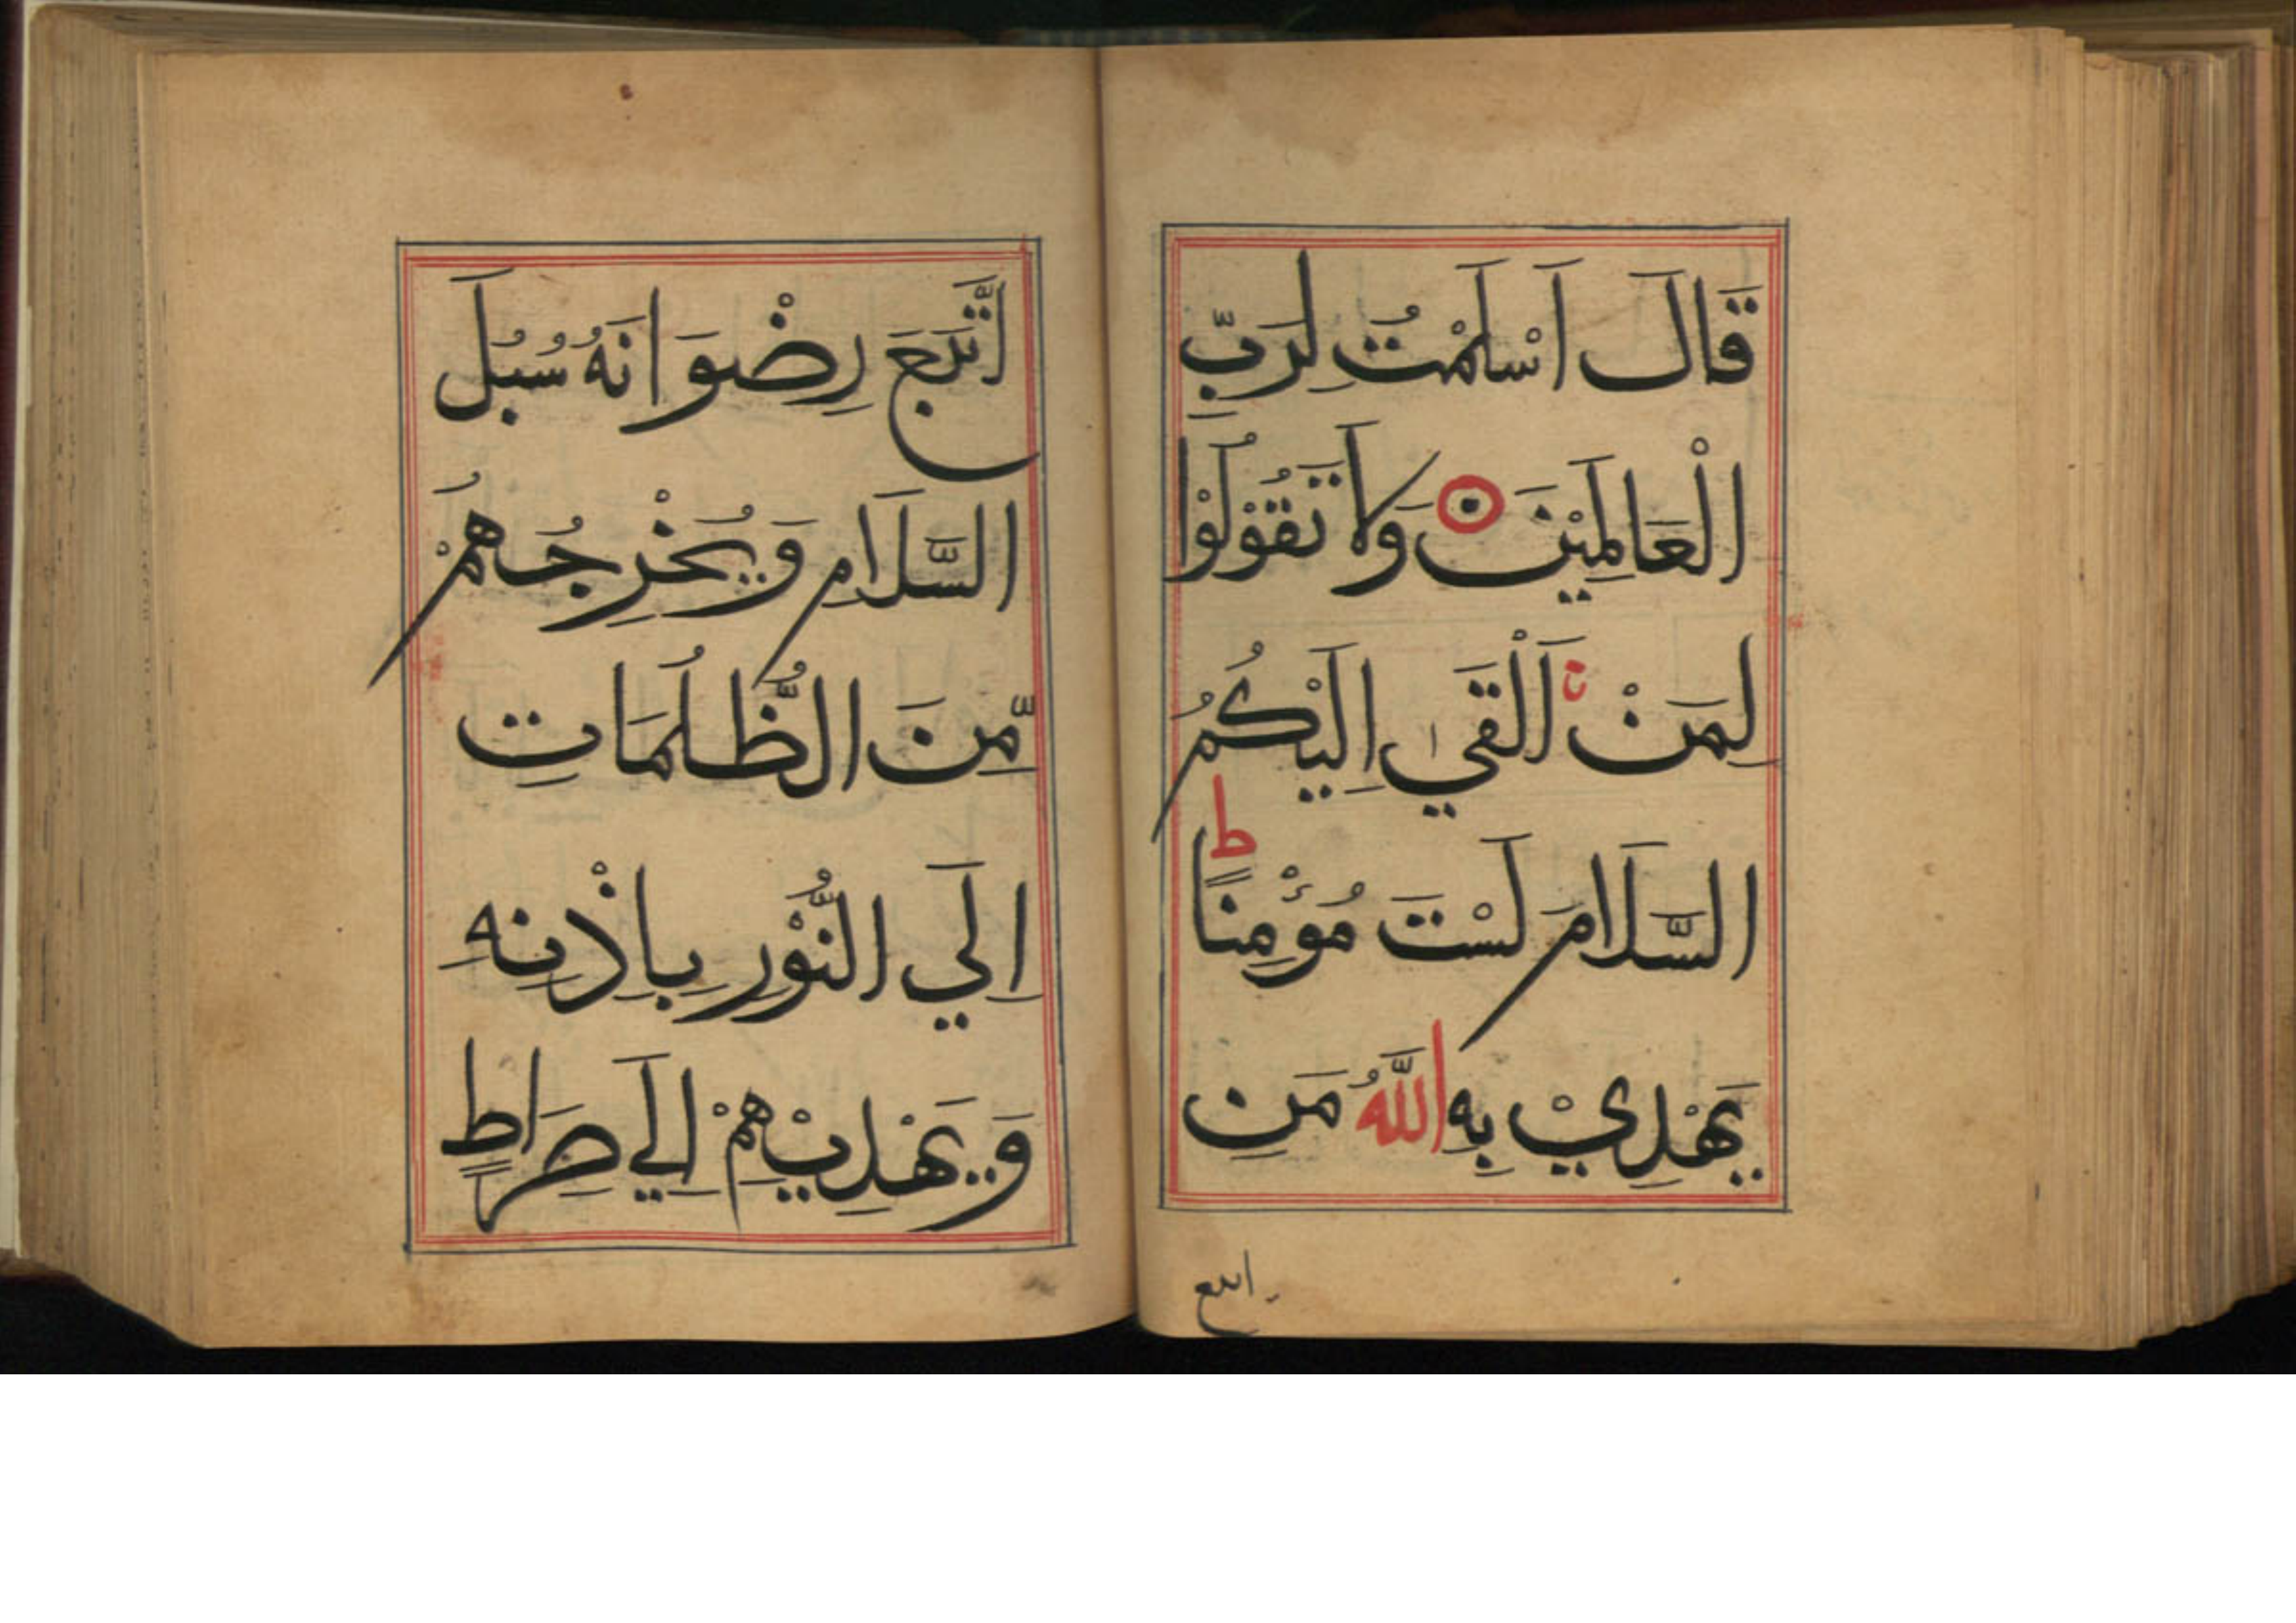 قَالَ اَسْلَمْتُ لِرَبِّ
الْعَالَمِيْنَ وَلَا تَقُوْلُوْا
لِمَنْ اَلْقَيٰ اِلَيْكُمُ
السَّلَامَ لَسْتَ مُؤْمِنًا ط
يَهْدِيْ بِهِ اللَّهُ مَنِ
اتبع
اتَّبَعَ رِضْوَانَهُ سُبُلَ
السَّلَامِ وَيُخْرِجُهُمْ
مِّنَ الظُّلُمَاتِ
اِلَي النُّوْرِ بِاِذْنِهِ
وَيَهْدِيْهِمْ اِلَي صِرَاطٍ